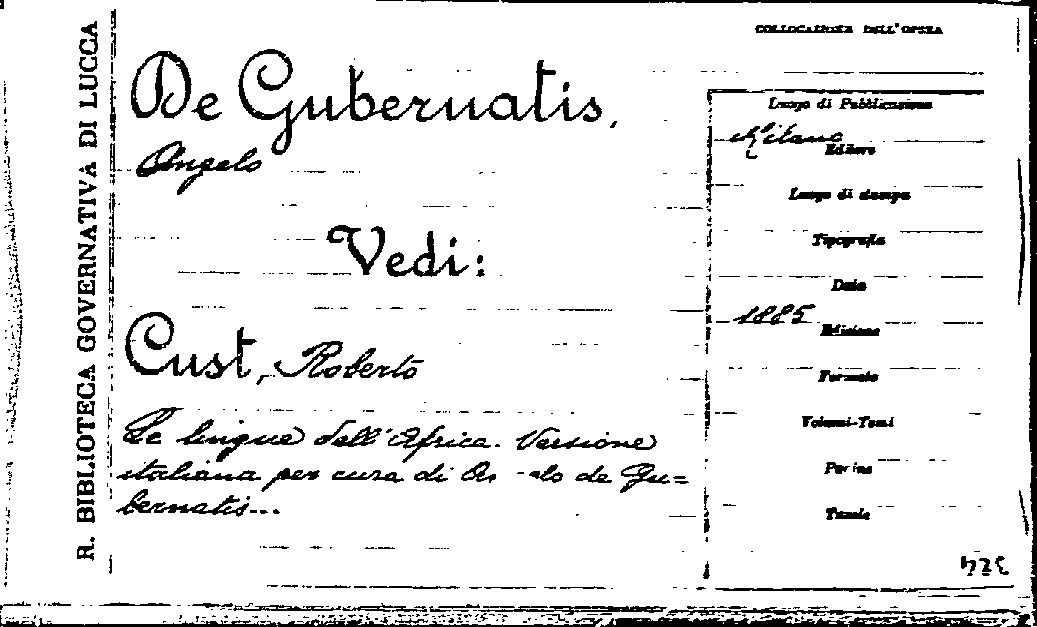 R. BIBLIOTECA GOVERNATIVA DI LUCCA
COLLOCAZIONE DELL'OPERA
De Gubernatis,
Angelo
Vedi:
Cust, Roberto
Le lingue dell'Africa. Versione
italiana per cura di de Gu=
bernatis...
Luogo di Pubblicazione
Milano
Editore
Luogo di stampa
Tipografia
Data
1885
Edizione
Formato
Volumi-Tomi
Pagine
Tavole